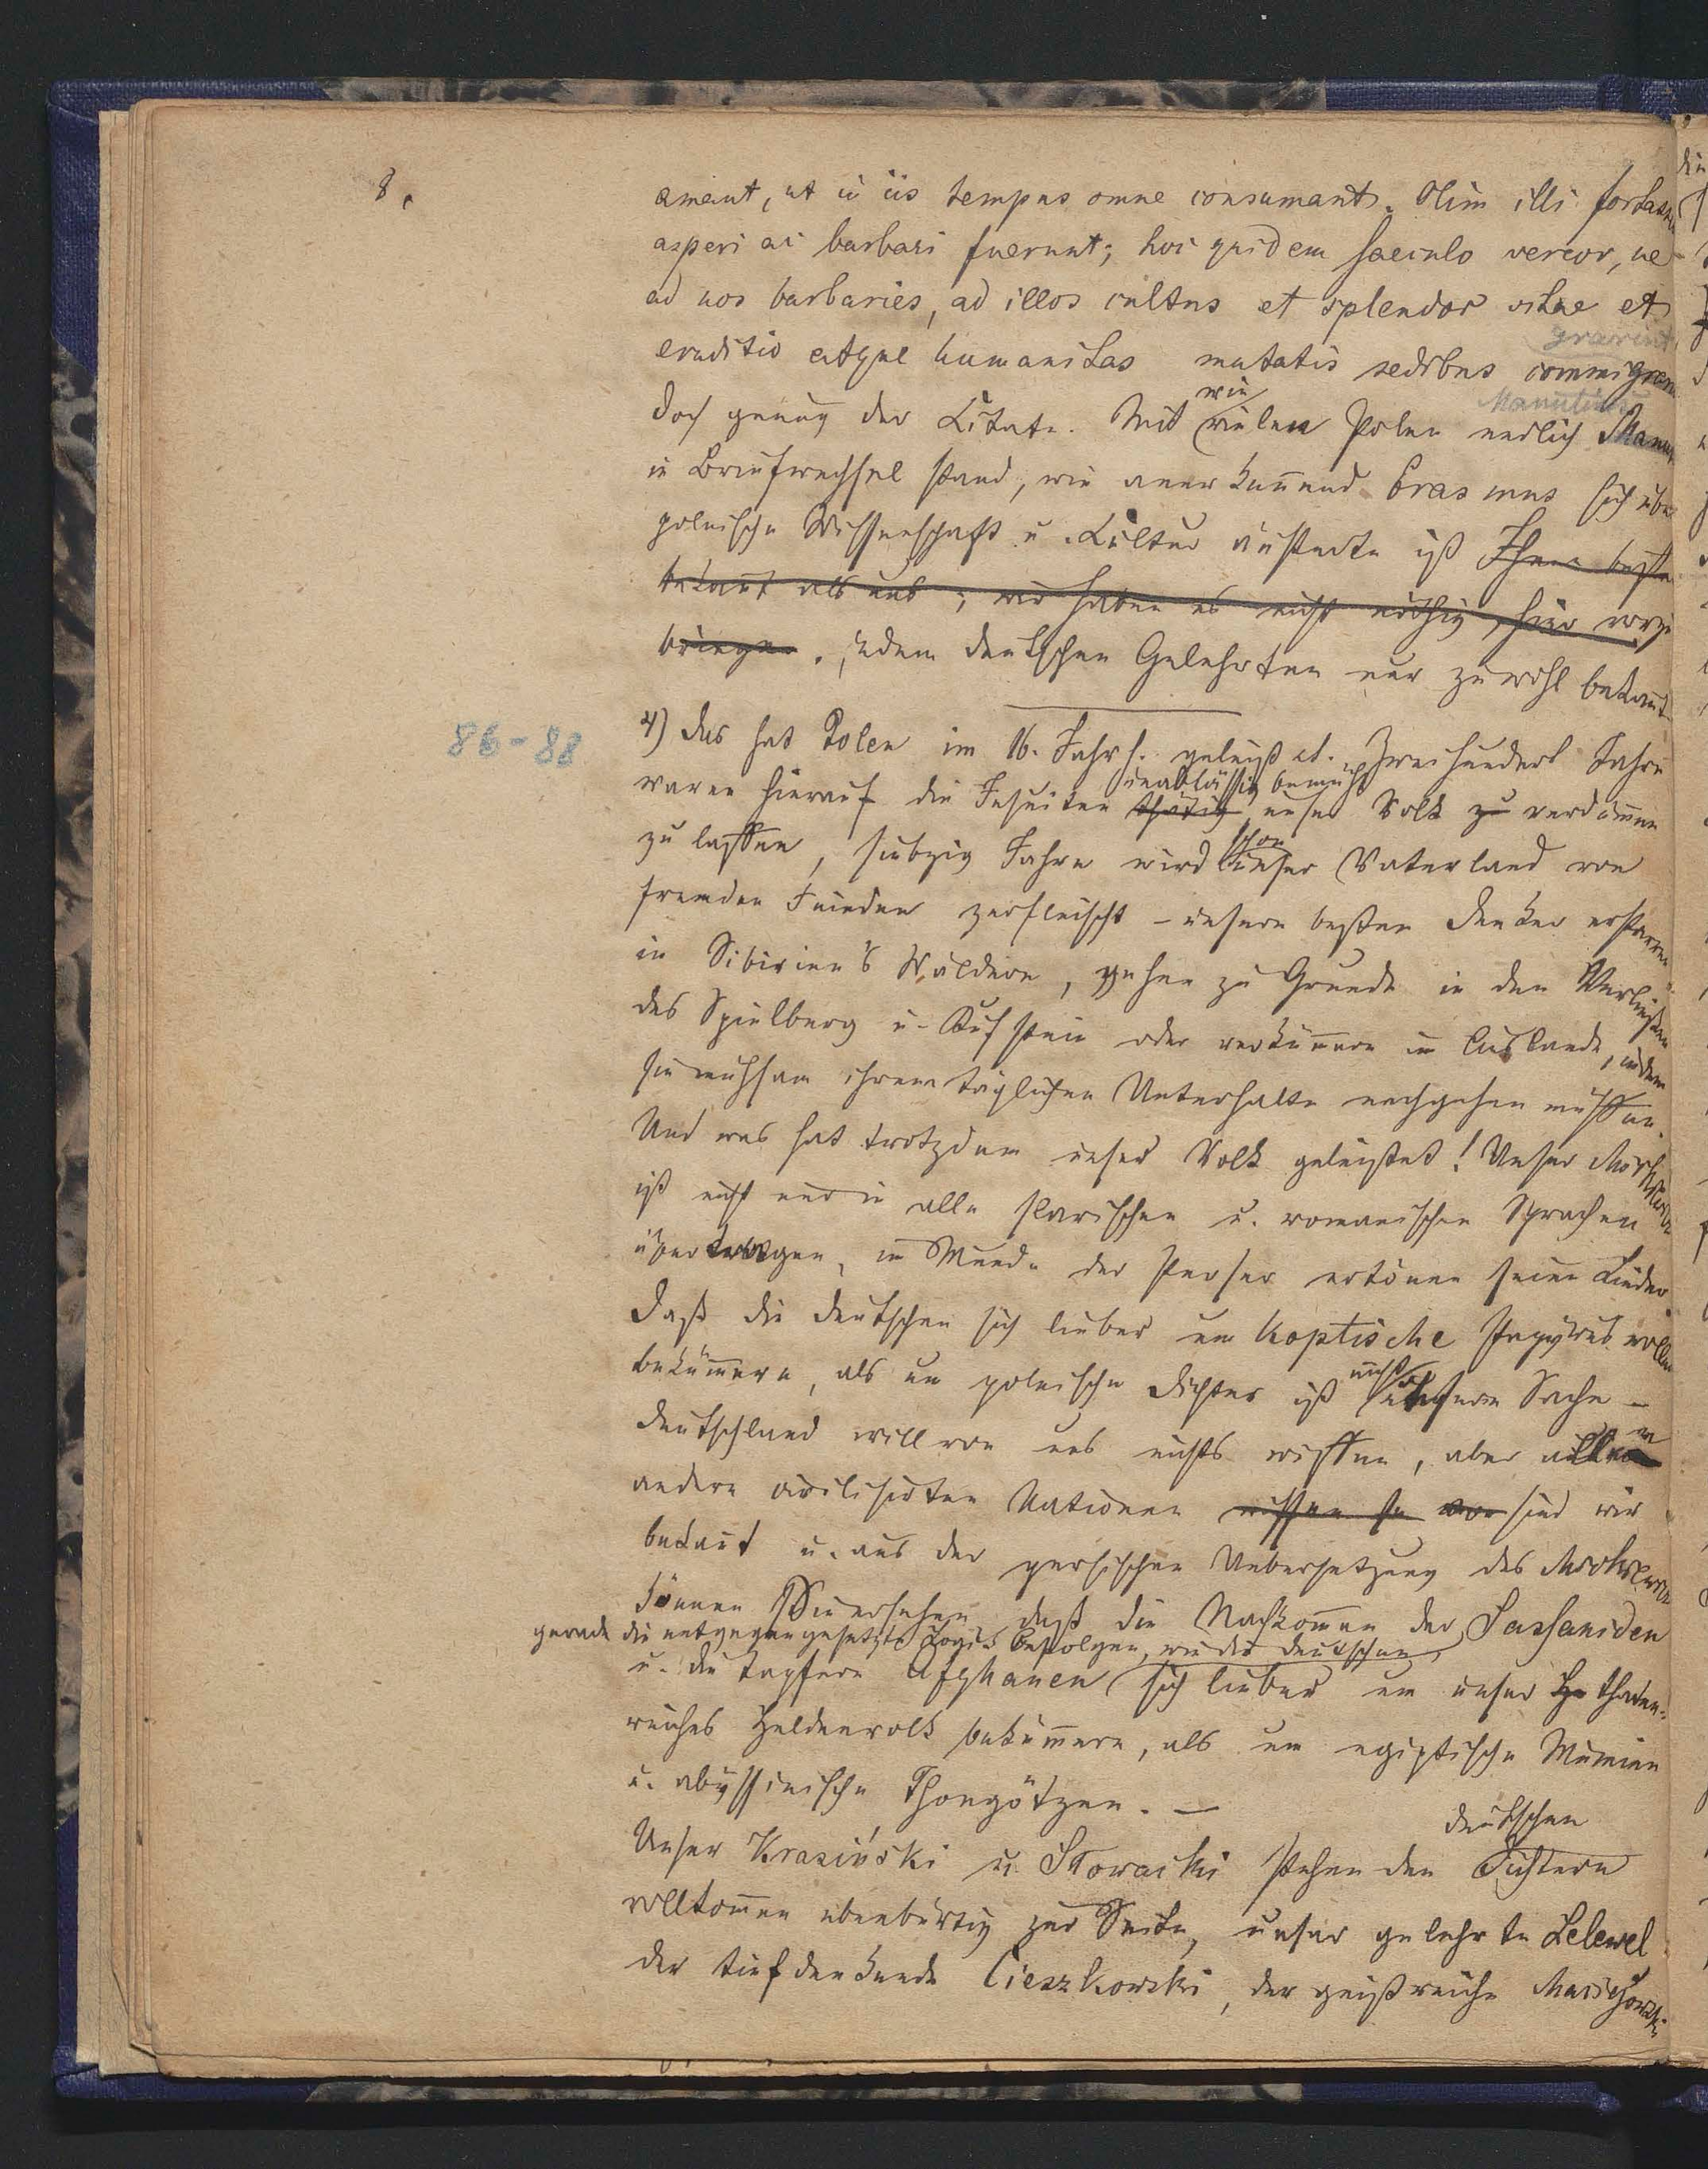 8.
ament, ut in iis tempus omne consumant. Olim illi fortasse
asperi ac barbari fuerunt; hoc quidem saeculo vereor, ne
ad nos barbaries, ad illos cultus et splendor vitae et
gravint
eruditio atque humanitas mutatis sedibus commigren
wie Manutius
Doch genug der Citate. Mit vielen Polen endlich Manu
in Briefwechsel stand, wie anerkennend Erasmus sich über
polnische Wissenschaft u. Cultur äusserte ist Ihnen besser
bekannt als uns; wir haben es nicht nöthig, hier vorzu
bringen. jedem deutschen Gelehrten nur zu wohl bekannt
86-88
4) Das hat Polen im 16. Jahrh. geleistet. Zweihundert Jahre
unablässig bemüht
waren hierauf die Jesuiten thätig unser Volk zu verdummen
schon
zu lassen, siebzig Jahre wird unser Vaterland von
fremden Feinden zerfleischt – unsere besten Denker erstarren
in Sibirien's Wäldern, gehen zu Grunde in den Verließen
des Spielberg u. Kufstein oder verkümmern im Auslande, indem
sie mühsam ihrem täglichen Unterhalte nachgehen müssen.
Und was hat trotzdem unser Volk geleistet! Unser Mickiewicz
ist nicht nur in alle slavischen u. romanischen Sprachen
übertragen, im Munde der Perser ertönen seine Lieder.
Daß die Deutschen sich lieber um koptische Papyrus wollen
nicht
bekümmern, als um polnische Dichter ist unsere Sache –
Deutschland will von uns nichts wissen, aber allen
andern civilisirten Nationen wissen sie von sind wir
bekannt u. aus der persischen Uebersetzung des Mickiewicz
können Sie ersehen daß die Nachkommen der Sassaniden
gerade die entgegengesetzte Logik befolgen, wie die Deutschen,
u. die tapfern Afghanen sich lieber um unser He thaten-
reiches Heldenvolk bekümmern, als um egiptische Mumien
u. abyssinische Thongötzen. –
deutschen
Unser Krasiński u. Słowacki stehen den Dichtern
vollkommen ebenbürtig zur Seite, unser gelehrte Lelewel
der tiefdenkende Cieszkowski, der geistreiche Maciejowski